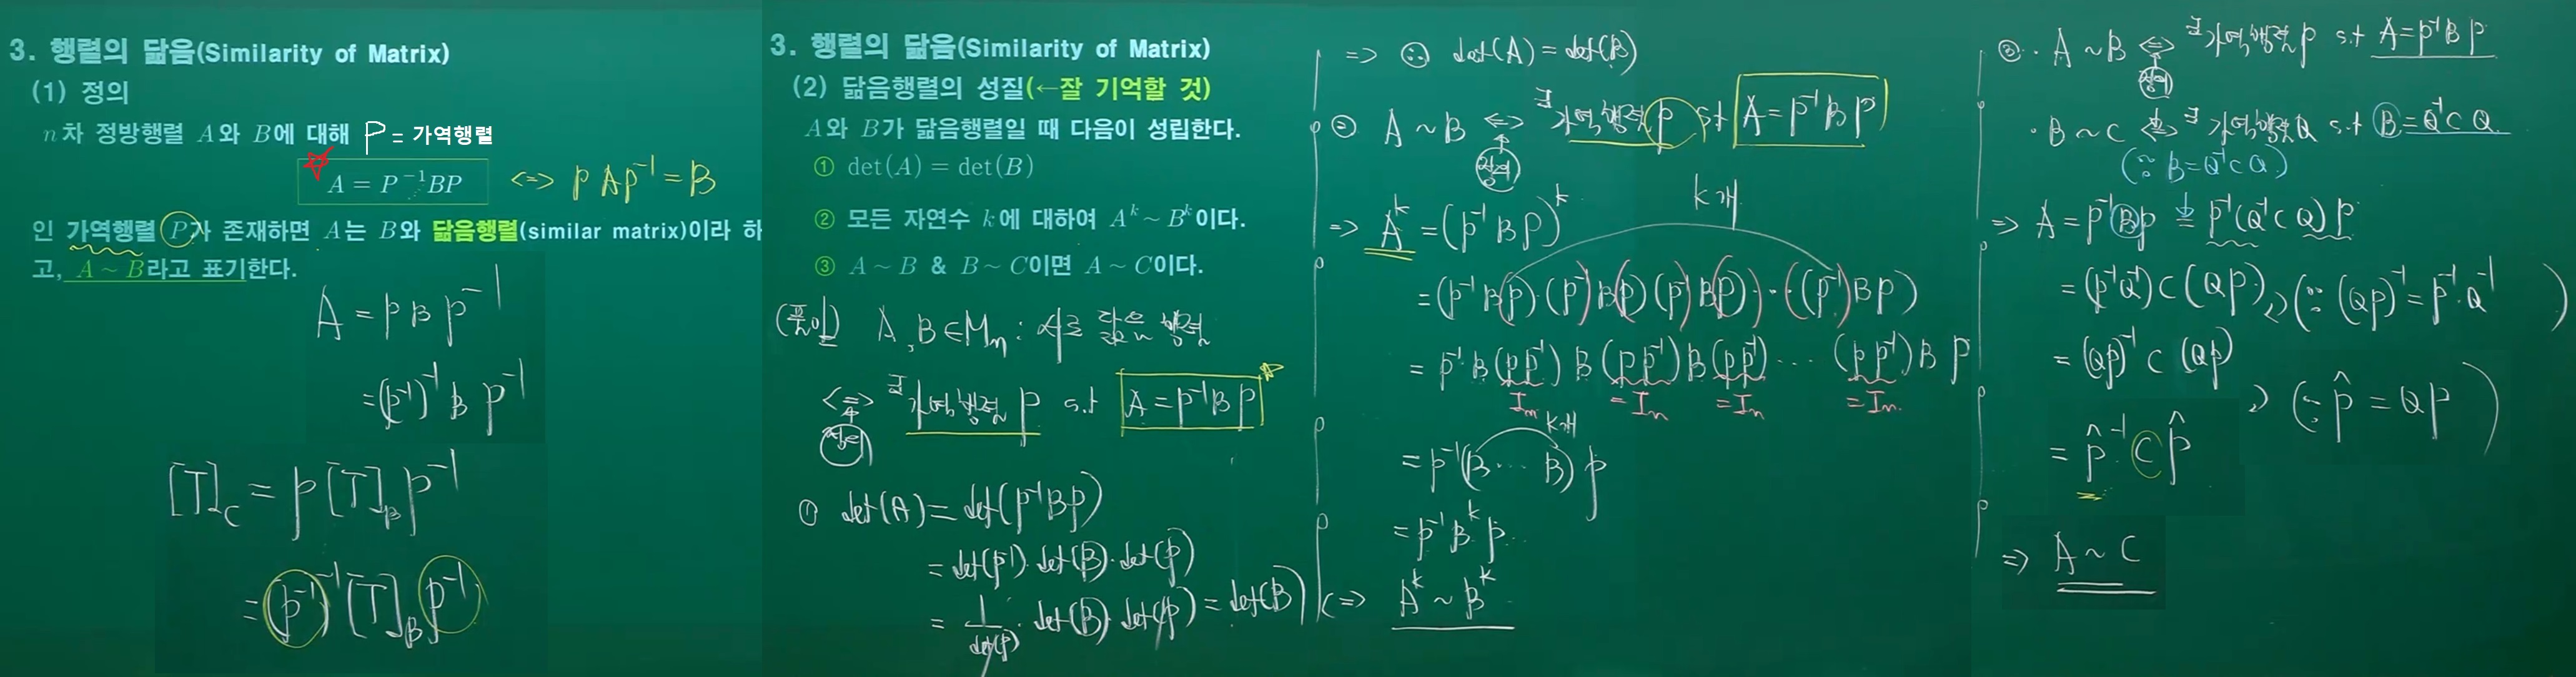 3. 행렬의 닮음(Similarity of Matrix)
(1) 정의
n차 정방행렬 A와 B에 대해 P = 가역행렬
A = P⁻¹BP <=> PAP⁻¹ = B
인 가역행렬 P가 존재하면 A는 B와 닮음행렬(similar matrix)이라 하
고, A ~ B라고 표기한다.
A = P B P⁻¹
= (P⁻¹)⁻¹ B P⁻¹
[T]_C = P [T]_B P⁻¹
= (P⁻¹)⁻¹ [T]_B P⁻¹
3. 행렬의 닮음(Similarity of Matrix)
(2) 닮음행렬의 성질(←잘 기억할 것)
A와 B가 닮음행렬일 때 다음이 성립한다.
① det(A) = det(B)
② 모든 자연수 k에 대하여 Aᵏ ~ Bᵏ이다.
③ A ~ B & B ~ C이면 A ~ C이다.
(풀이) A, B ∈ Mₙ : 서로 닮은 행렬
<=> ∃ 가역행렬 P s.t A = P⁻¹BP
정의
① det(A) = det(P⁻¹BP)
= det(P⁻¹)·det(B)·det(P)
= 1/det(P) · det(B)·det(P) = det(B)
=> ∴ det(A) = det(B)
② A ~ B <=> ∃ 가역행렬 P st A = P⁻¹BP
정의
=> Aᵏ = (P⁻¹BP)ᵏ
k개
= (P⁻¹BP)·(P⁻¹BP)(P⁻¹BP)···(P⁻¹BP)
= P⁻¹B(PP⁻¹)B(PP⁻¹)B(PP⁻¹)···(PP⁻¹)BP
Iₙ = Iₙ = Iₙ = Iₙ
k개
= P⁻¹(B···B)P
= P⁻¹BᵏP
<=> Aᵏ ~ Bᵏ
③ · A ~ B <=> ∃ 가역행렬 P s.t A = P⁻¹BP
정의
· B ~ C <=> ∃ 가역행렬 Q s.t B = Q⁻¹CQ
(∵ B = Q⁻¹CQ)
=> A = P⁻¹BP = P⁻¹(Q⁻¹CQ)P
= (P⁻¹Q⁻¹)C(QP) (∵ (QP)⁻¹ = P⁻¹·Q⁻¹)
= (QP)⁻¹C(QP)
(∵ P̂ = QP)
= P̂⁻¹CP̂
=> A ~ C